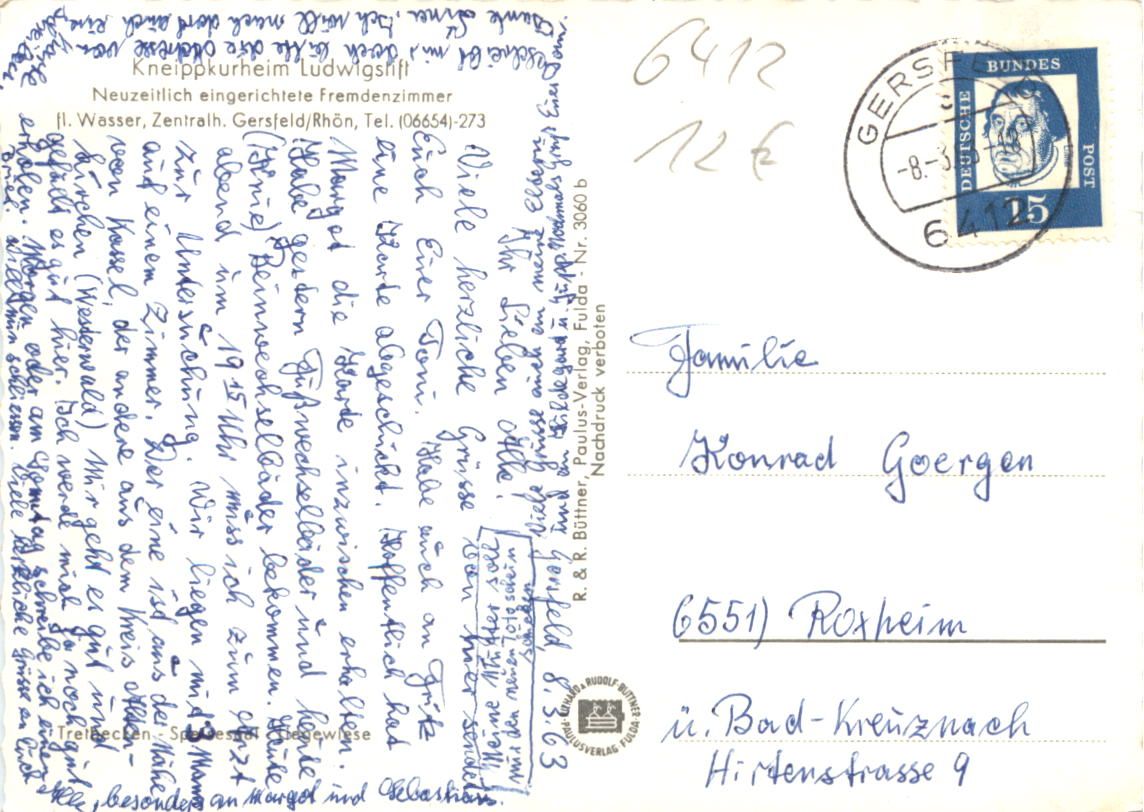 Kneippkurheim Ludwigstift
Neuzeitlich eingerichtete Fremdenzimmer
fl. Wasser, Zentralh. Gersfeld/Rhön, Tel. (06654)-273
Tretbecken - Speisesaal - Liegewiese
Gersfeld 8.3.63
Ihr Lieben Alle!
Viele herzliche Grüsse von hier sendet
Euch Euer Toni. Habe auch an Fritz
eine Karte abgeschickt. Hoffentlich hat
Margot die Karte inzwischen erhalten.
Habe gestern Fußwechselbäder und heute
(Knie) Beinwechselbäder bekommen. Heute
abend um 19 15 Uhr muss ich zum Arzt
zur Untersuchung. Wir liegen mit 3 Mann
auf einem Zimmer. Der eine ist aus der Nähe
von Kassel, der andere aus dem Kreis Alten-
kirchen (Westerwald) Mir geht es gut und
gefällt es gut hier. Ich werde mich ja noch gut
erholen. Morgen oder am Sonntag schreibe ich einen
Brief. Viele herzliche Grüsse an Euch
Alle, besonders an Margot und Sebastian.
Schreibt mir doch bitte die Adresse von
Tante Anna. Ich will nach dort auch eine Karte
schreiben.
Viele Grüsse auch an meine Eltern
und an Hildegard u. Jupp. Nochmals Gruß Euer Toni
Meine Mutter soll
mir den neuen Fotoschein
schicken
R. & R. Büttner, Paulus-Verlag, Fulda - Nr. 3060 b
Nachdruck verboten
LIKHARD & RUDOLF BÜTTNER
PAULUSVERLAG FULDA
6412
12 €
GERSFE
-8.-3.
6412
DEUTSCHE BUNDES POST
25
Familie
Konrad Goergen
6551) Roxheim
ü. Bad-Kreuznach
Hirtenstrasse 9